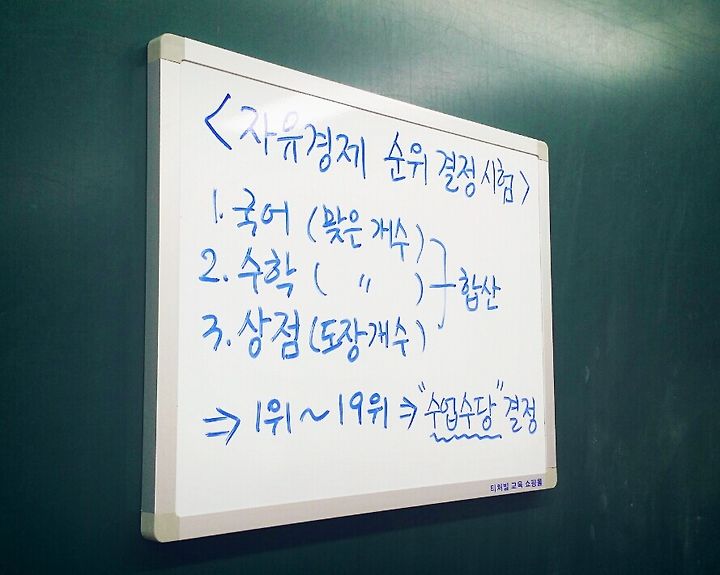 <자유경제 순위결정시험>
1. 국어 (맞은개수)
2. 수학 ( 〃 )
합산
3. 상점 (도장개수)
⇒ 1위~19위 ⇒ "수업수당" 결정
티처빌 교육 쇼핑몰